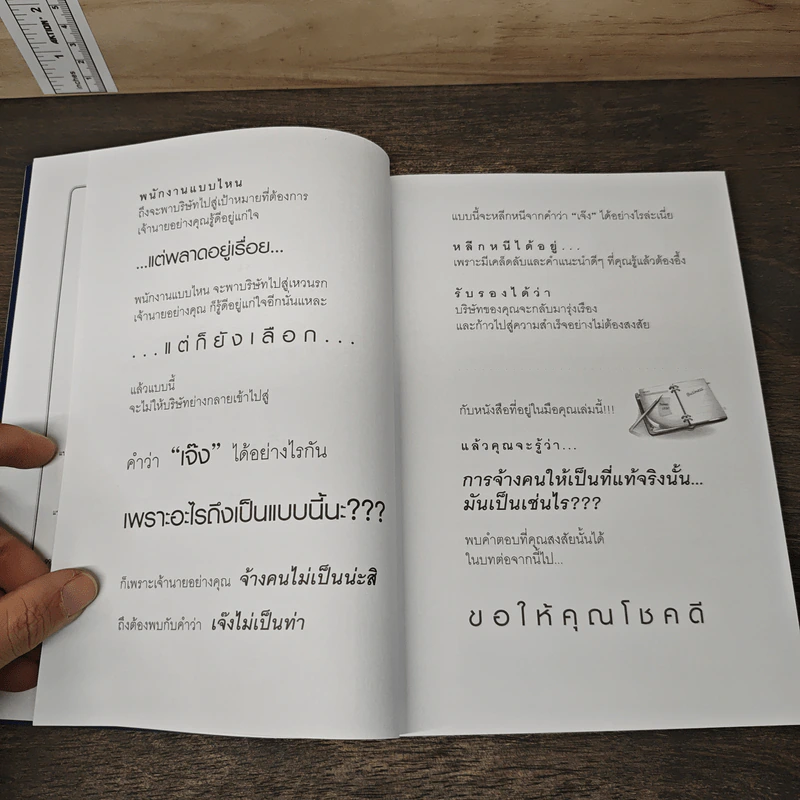 พนักงานแบบไหน
ถึงจะพาบริษัทไปสู่เป้าหมายที่ต้องการ
เจ้านายอย่างคุณรู้ดีอยู่แก่ใจ
...แต่พลาดอยู่เรื่อย...
พนักงานแบบไหน จะพาบริษัทไปสู่เหวนรก
เจ้านายอย่างคุณ ก็รู้ดีอยู่แก่ใจอีกนั่นแหละ
...แต่ก็ยังเลือก...
แล้วแบบนี้
จะไม่ให้บริษัทย่างกลายเข้าไปสู่
คำว่า “เจ๊ง” ได้อย่างไรกัน
เพราะอะไรถึงเป็นแบบนี้นะ???
ก็เพราะเจ้านายอย่างคุณ จ้างคนไม่เป็นน่ะสิ
ถึงต้องพบกับคำว่า เจ๊งไม่เป็นท่า
แบบนี้จะหลีกหนีจากคำว่า “เจ๊ง” ได้อย่างไรล่ะเนี่ย
หลีกหนีได้อยู่...
เพราะมีเคล็ดลับและคำแนะนำดีๆ ที่คุณรู้แล้วต้องอึ้ง
รับรองได้ว่า
บริษัทของคุณจะกลับมารุ่งเรือง
และก้าวไปสู่ความสำเร็จอย่างไม่ต้องสงสัย
กับหนังสือที่อยู่ในมือคุณเล่มนี้!!!
แล้วคุณจะรู้ว่า...
การจ้างคนให้เป็นที่แท้จริงนั้น...
มันเป็นเช่นไร???
พบคำตอบที่คุณสงสัยนั้นได้
ในบทต่อจากนี้ไป...
ขอให้คุณโชคดี